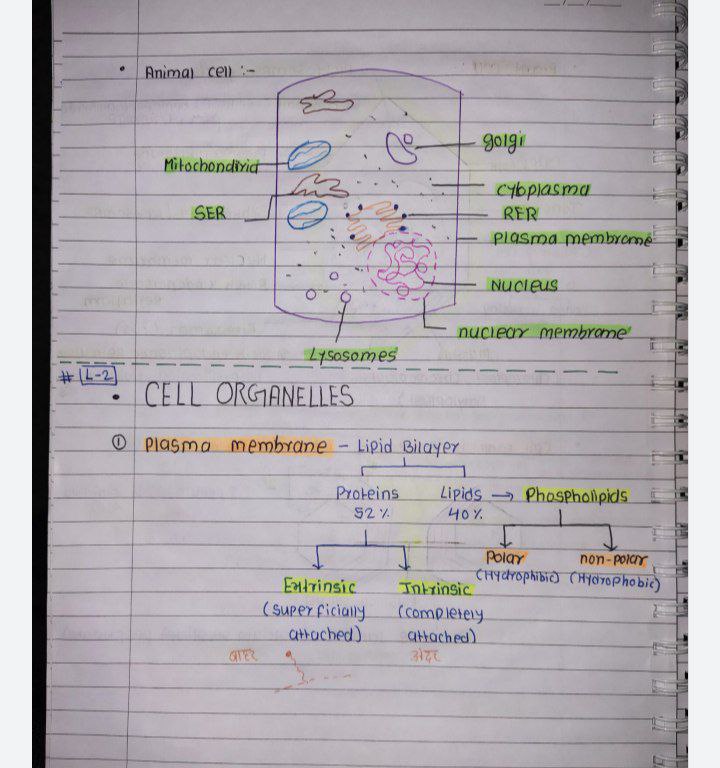 • Animal cell :-
golgi
Mitochondria
cytoplasma
SER
RER
plasma membrane
Nucleus
nuclear membrane
Lysosomes
# L-2
• CELL ORGANELLES
① plasma membrane - Lipid Bilayer
Proteins Lipids → Phospholipids
52% 40%
Polar non-polar
(Hydrophibic) (Hydrophobic)
Extrinsic Intrinsic
(superficially (completely
attached) attached)
बाहर अंदर